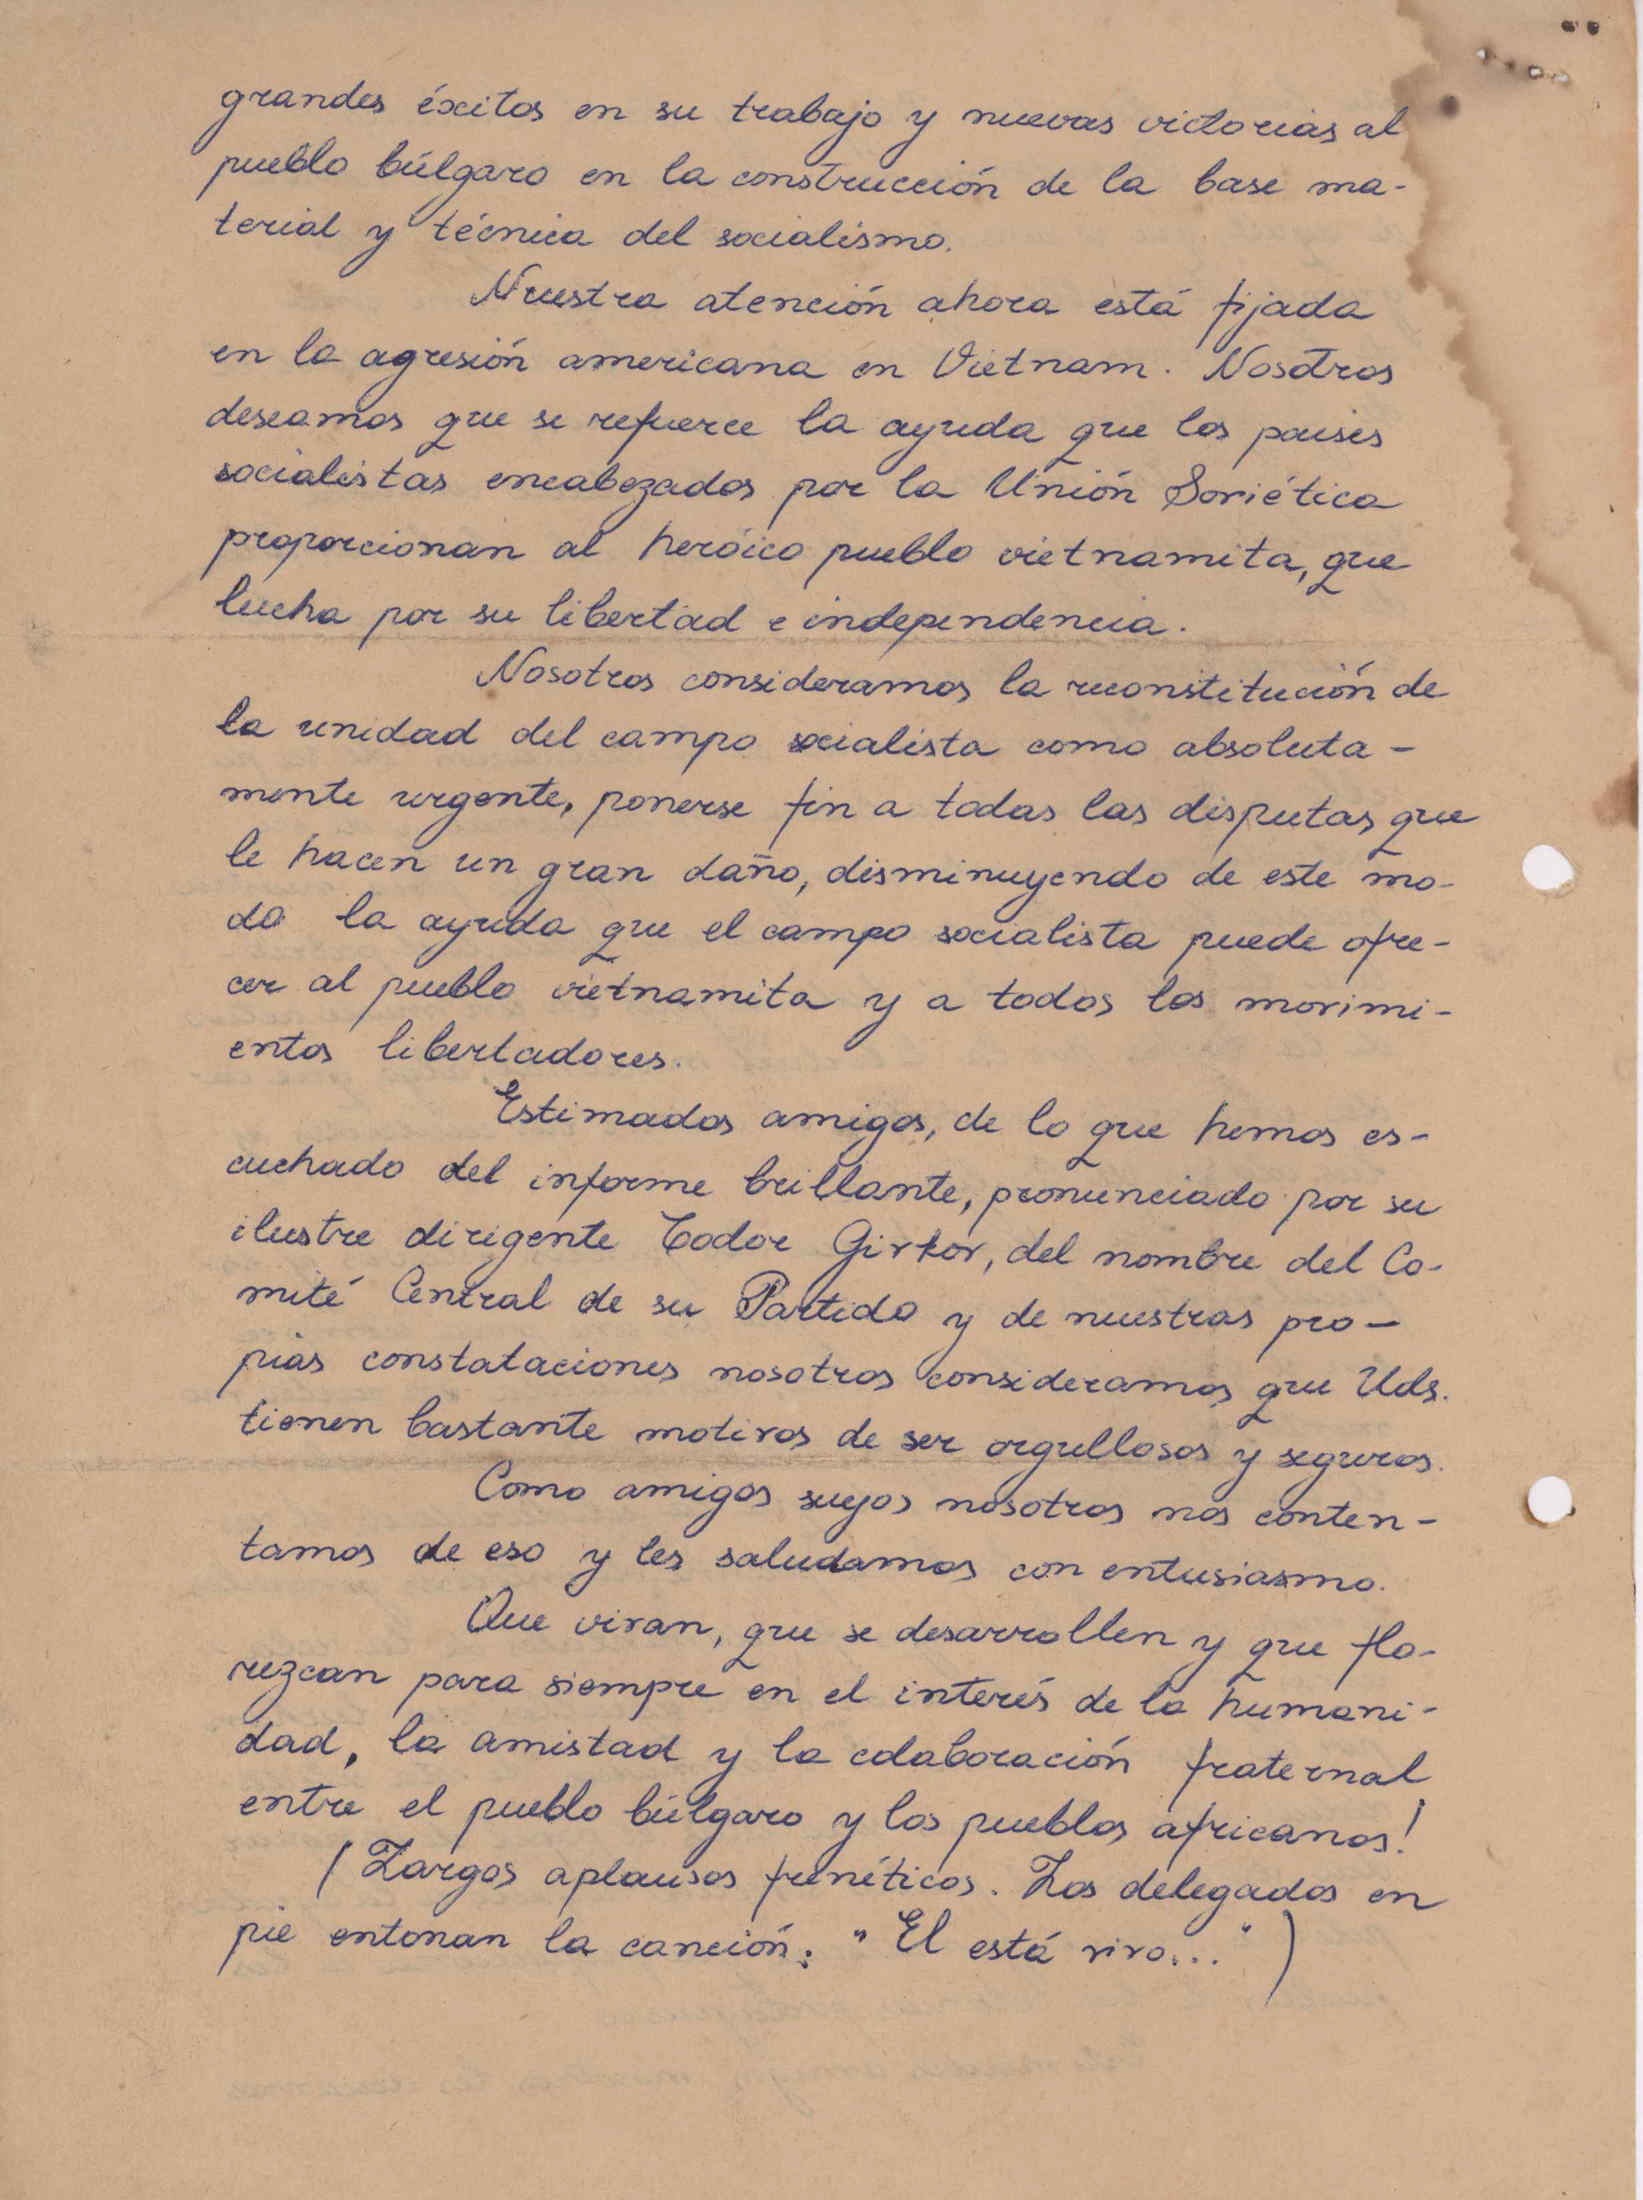 grandes éxitos en su trabajo y nuevas victorias al
pueblo búlgaro en la construcción de la base ma-
terial y técnica del socialismo.
Nuestra atención ahora está fijada
en la agresión americana en Vietnam. Nosotros
deseamos que se refuerce la ayuda que los paises
socialistas encabezados por la Unión Soviética
proporcionan al heróico pueblo vietnamita, que
lucha por su libertad e independencia.
Nosotros consideramos la reconstitución de
la unidad del campo socialista como absoluta-
mente urgente, ponerse fin a todas las disputas que
le hacen un gran daño, disminuyendo de este mo-
do la ayuda que el campo socialista puede ofre-
cer al pueblo vietnamita y a todos los movimi-
entos libertadores.
Estimados amigos, de lo que hemos es-
cuchado del informe brillante, pronunciado por su
ilustre dirigente Todor Givkov, del nombre del Co-
mité Central de su Partido y de nuestras pro-
pias constataciones nosotros consideramos que Uds.
tienen bastante motivos de ser orgullosos y seguros.
Como amigos suyos nosotros nos conten-
tamos de eso y les saludamos con entusiasmo.
Que vivan, que se desarrollen y que flo-
rezcan para siempre en el interés de la humani-
dad, la amistad y la colaboración fraternal
entre el pueblo búlgaro y los pueblos africanos!
(Largos aplausos frenéticos. Los delegados en
pie entonan la canción: "El está vivo...")